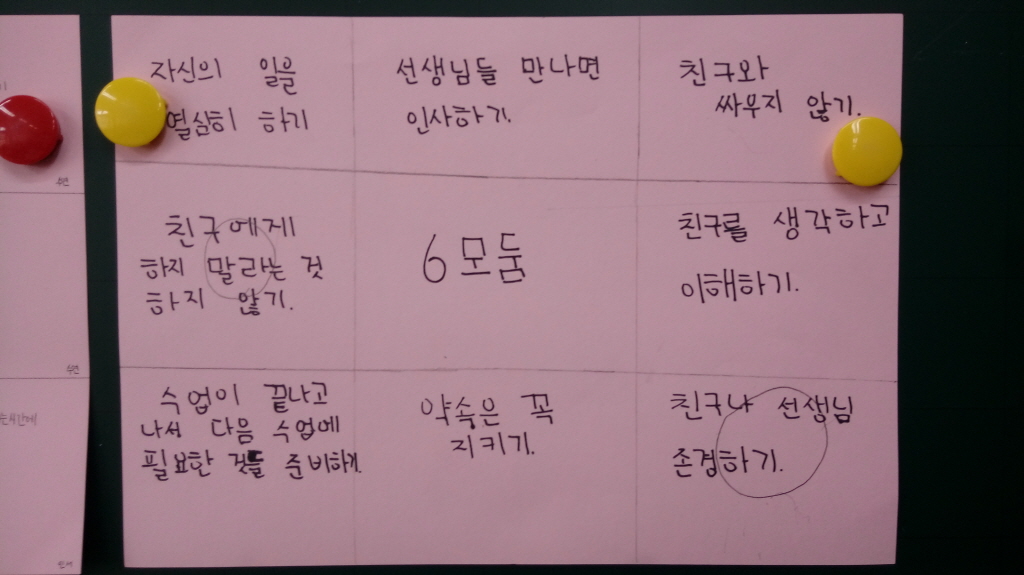 자신의 일을
열심히 하기
선생님들 만나면
인사하기.
친구와
싸우지 않기.
친구에게
하지 말라는 것
하지 않기.
6모둠
친구를 생각하고
이해하기.
수업이 끝나고
나서 다음 수업에
필요한 것들 준비하기.
약속은 꼭
지키기.
친구나 선생님
존경하기.